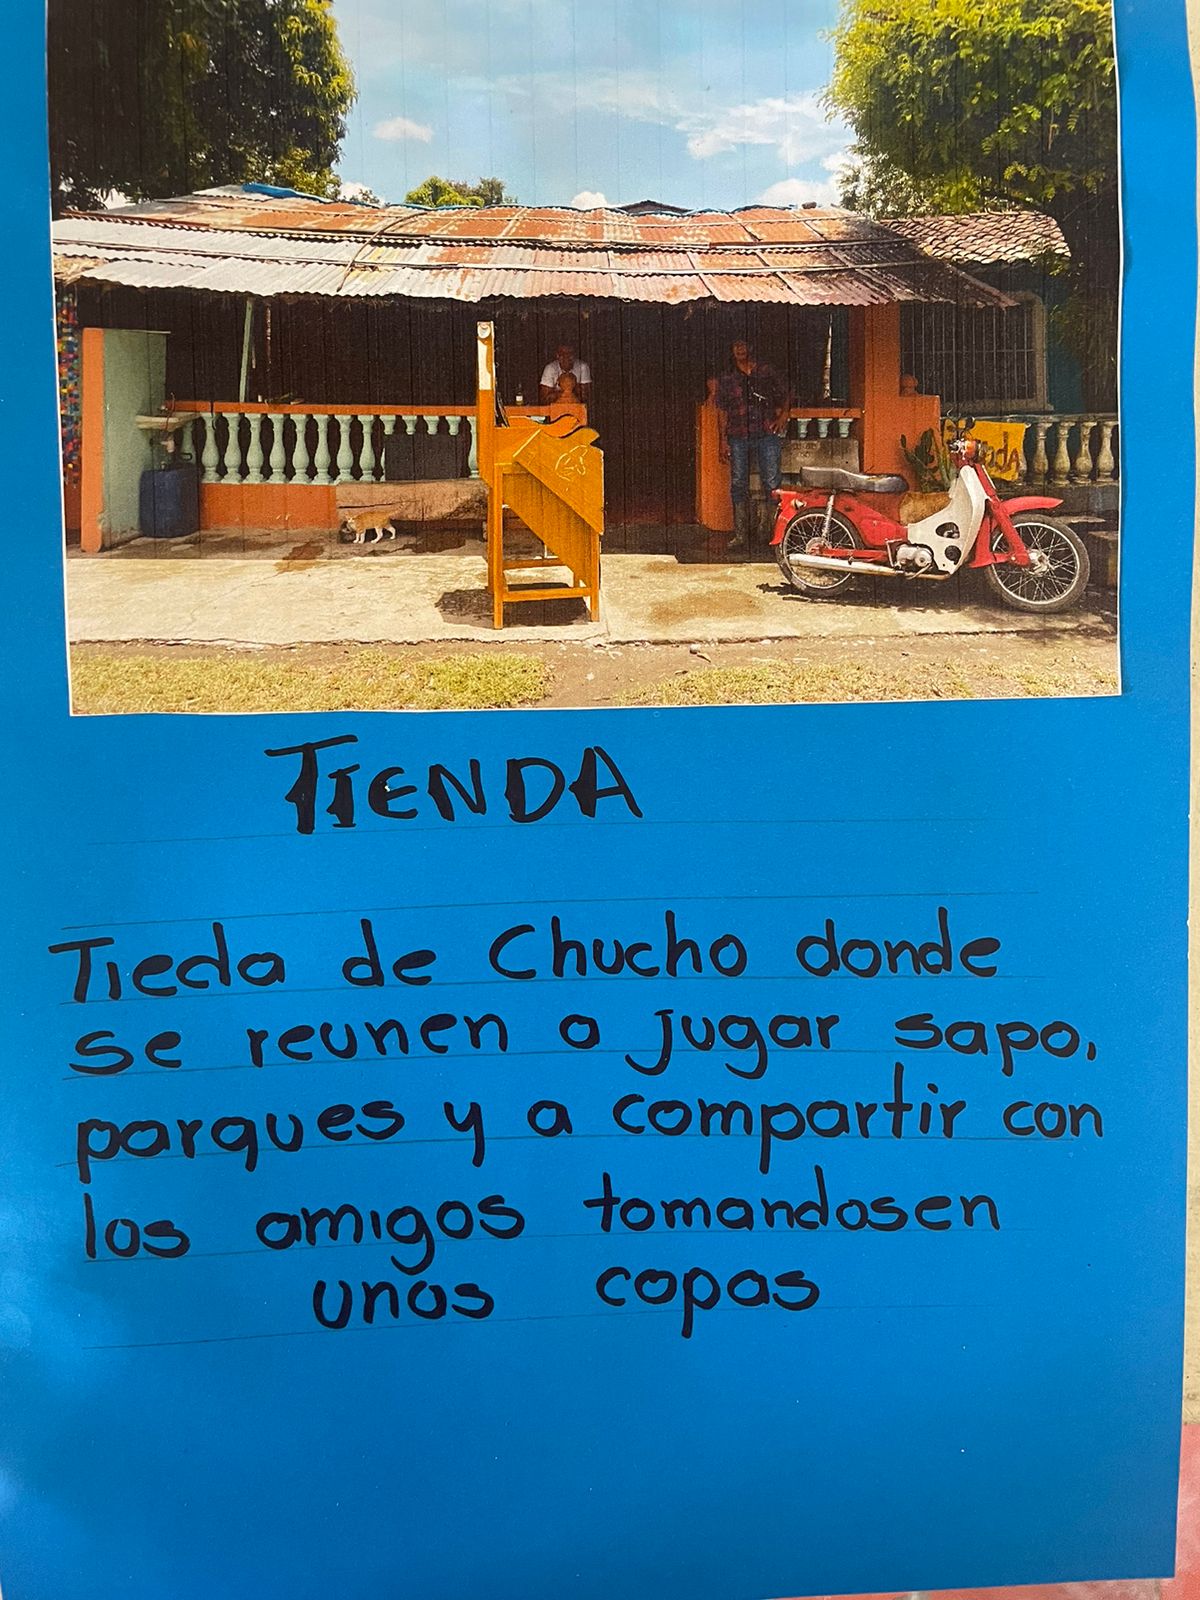 TIENDA
Tieda de Chucho donde
se reunen a jugar sapo,
parques y a compartir con
los amigos tomandosen
unas copas